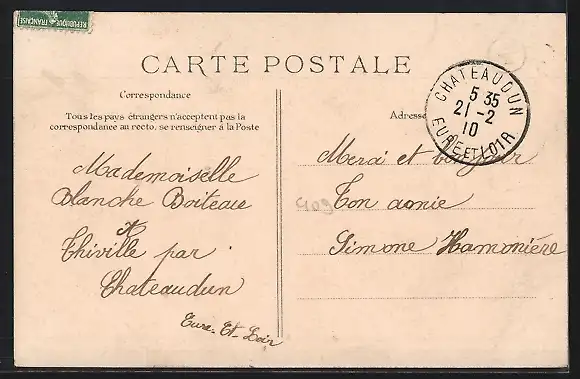 REPUBLIQUE FRANÇAISE
CARTE POSTALE
Correspondance
Tous les pays étrangers n'acceptent pas la
correspondance au recto, se renseigner à la Poste
Mademoiselle
Blanche Boiteau
à
Thiville par
Chateaudun
Eure-Et-Loir
Adresse
CHATEAUDUN
5 35
21 -2
10
EURE ET LOIR
Merci et bonjour
Ton amie
Simone Hamonière